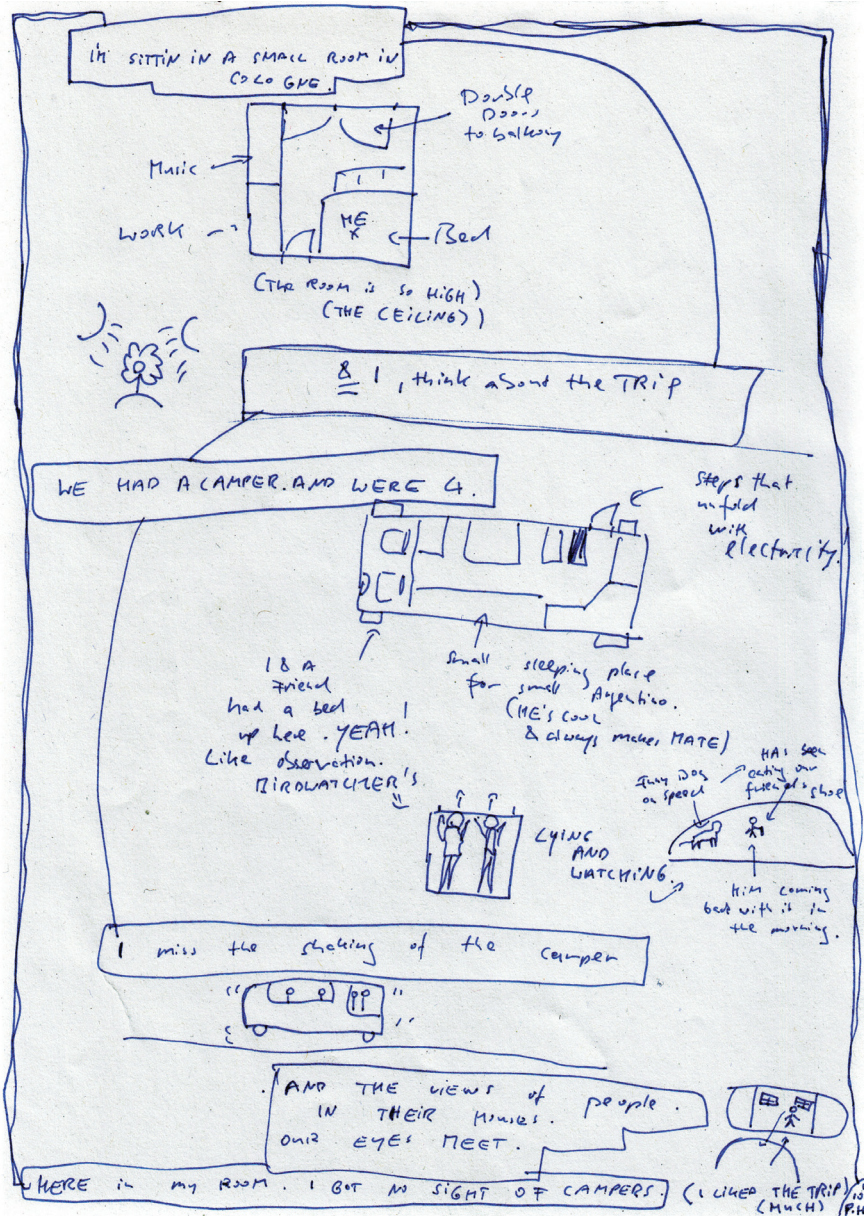 I'M SITTIN IN A SMALL ROOM IN
COLOGNE.
Double
Doors
to balkony
Music
WORK
ME
x
Bed
(THE ROOM is so HIGH)
(THE CEILING))
& I, think about the TRIP
WE HAD A CAMPER. AND WERE 4.
steps that
unfold
with
electricity.
I & A
Friend
had a bed
up here. YEAH!
Like observation.
BIRDWATCHER'S
small sleeping place
for small Argentino.
(HE'S COOL
& always makes MATE)
LYING
AND
WATCHING.
Dog
on speed
HAS been
eating our
friend's shoe
HIM coming
back with it in
the morning.
I miss the shaking of the camper
AND THE views of people.
IN THEIR Houses.
OUR EYES MEET.
HERE in my ROOM. I GOT NO SIGHT OF CAMPERS.
(I LIKED THE TRIP)
(MUCH)